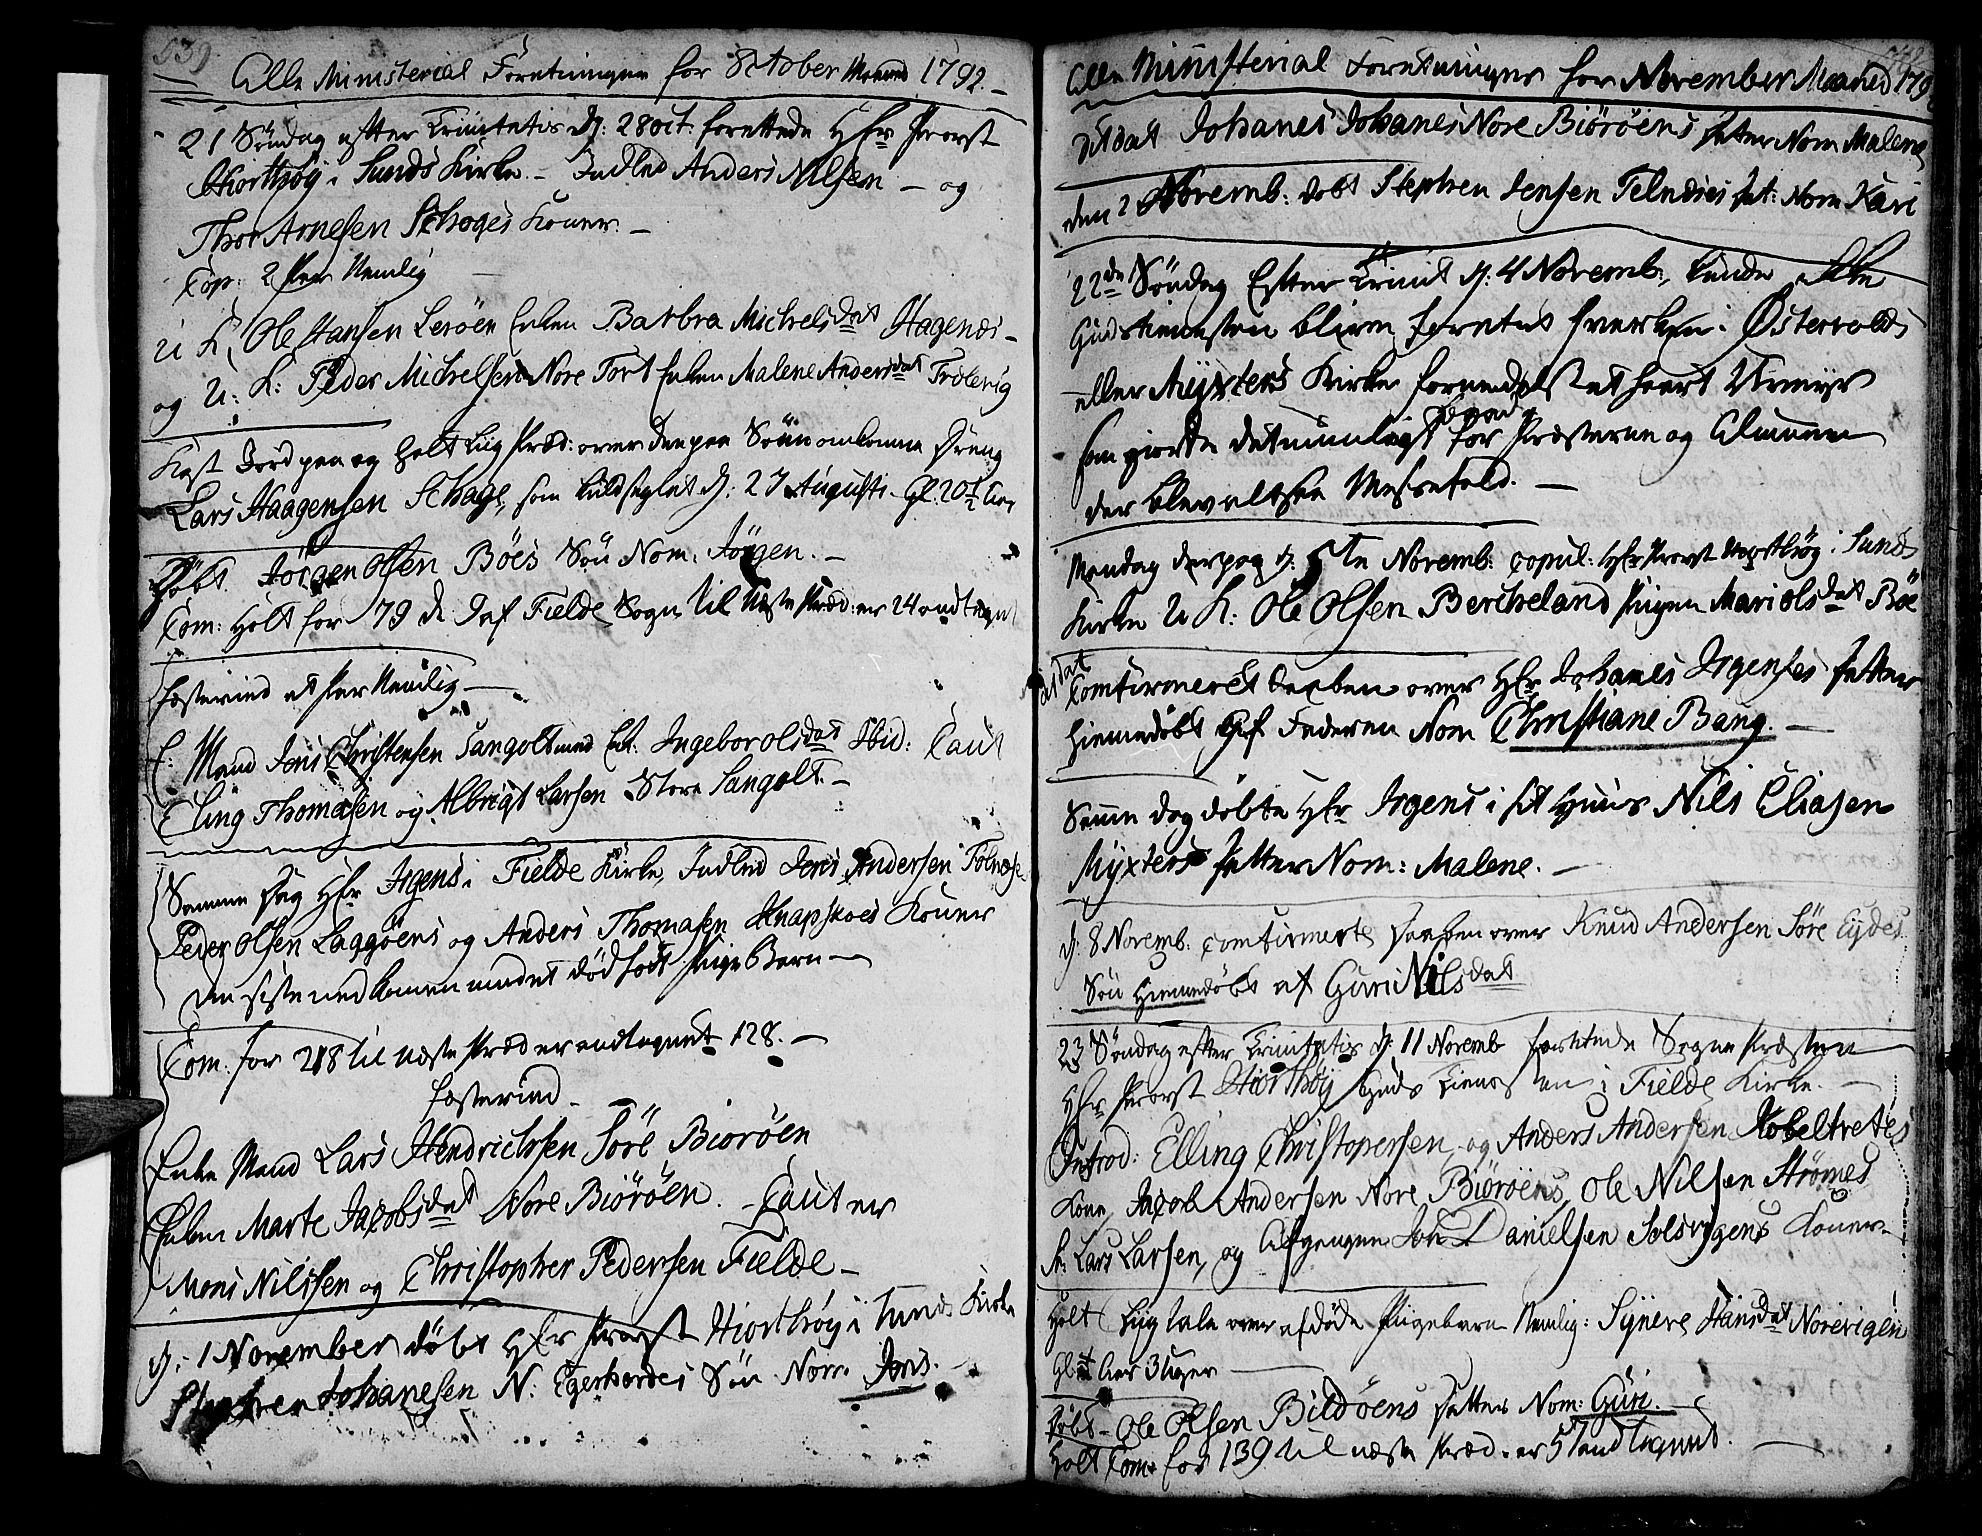 539
Alle Ministerial Forretninger for October Maaned 1792.-
21 Søndag efter Trinitatis d: 28 oct: forrettede Hr Provst
Hiorthøy i Sunds Kirke - Indled Anders Nilsen - og
Thor Arnesen Schoges Koner. -
Cop: 2 Par Nemlig
U K. Ole Hansen Lerøen Enken Barbra Michelsdat Hagenæs -
og U. K: Peder Michelsen Nore Tort Enken Malene Andersdat Trolevig
Kast Jord paa og holt Liig Præd: over den paa Søen omkomne Dreng
Lars Haagensen Schage, som d: 27 Augusti. Gl. 20½ Aar
Døbt. Jörgen Olsen Böes Sön Nom. Jörgen. -
Com: Holt for 79 d. Jaf Fielde Sogn til næste Præd: er 24 andtegnet
Fæsterind et Par Nemlig -
E: Mand Jens Christensen Sangolt med Enk: Ingebor Olsdat Ibid: Caut
Eling Thomasen og Albrigt Larsen Store Sangolt. -
Samme Dag Hr Irgens i Fielde Kirke, Indled Jens Andersen Tölnæse
Peder Olsen Laggöens og Anders Thomasen Knapskoes Koner
den siste nedkomen med et död födt Pige Barn -
Com: for 218 til næste Præd er andtegnet 128. -
Fæsterind -
Enke Mand Lars Hendrichsen Söre Biöröen
Enken Marte Jacobsdat Nore Biöröen. - Caut er
Mons Nilssen og Christopher Pedersen Fielde -
d: 1 November döbt Hr Provst Hiorthöy i Sunds Kirke
Stephen Johanesen N: Egerhordes Sön Nom Jens.
Alle Ministerial Forretninger for November Maaned 179
Johanes Johanes Nore Biöröens Datter Nom Malene
den 2 Novemb: döbt Stephen Jensen Telnæses Dat: Nom Kari
22de Søndag Efter Trinit d: 4 Novemb:, kunde Ikke
Guds tienesten bliven forrettet hverken i Østervolds
eller Myxters Kirke formedelst et haart Uveyr
som giorde det umueligt baade for Præsterne og Almuen
der blev altsaa Messefald. -
Mandag derpaa d: 5te Novemb: copul: Hr Provst Hiorthöy i Sunds
Kirke U K: Ole Olsen Bercheland Pigen Mari Olsdat Böe
Comfirmeret Daaben over Hr Johanes Irgenses Datter
hiemedöbt af Faderen Nom Christiane Bang. -
Samme dag döbte Hr Irgens i sit Huus Nils Eliasen
Myxters Datter Nom: Malene. -
d: 8 Novemb: comfirmerte Daaben over Knud Andersen Söre Eydes
Sön Hiemedöbt af Guri Nilsdat
23 Söndag efter Trinitatis d: 11 Novemb forrettede Sogne Præsten
Hr Provst Hiorthöy Guds Tienesten i Fielde Kirke. -
Introd: Elling Christopersen, og Anders Andersen Kobeltvetes
Kone, Jacob Andersen Nore Biöröens, Ole Nilsen Strömes
Lars Larsen, og Afgangne Joh Danielsen Solsvigens Koner -
Holt Liig tale over afdöde Pigebarn Nemlig: Syneve Hansdat Norevigen
Gl: Aar 3 Uger
Döbt - Ole Olsen Bildöens Datter Nom: Guri.
Holt Com for 139 til næste Præd. er 57 andtegnet. -